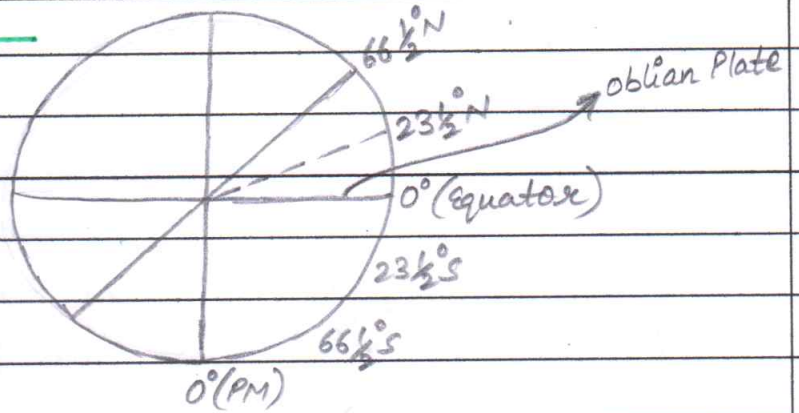 66½°N
oblian Plate
23½°N
0° (Equator)
23½°S
66½°S
0° (PM)